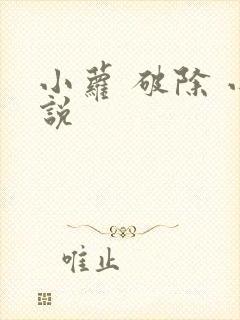 小蘿 破除
說
唯止